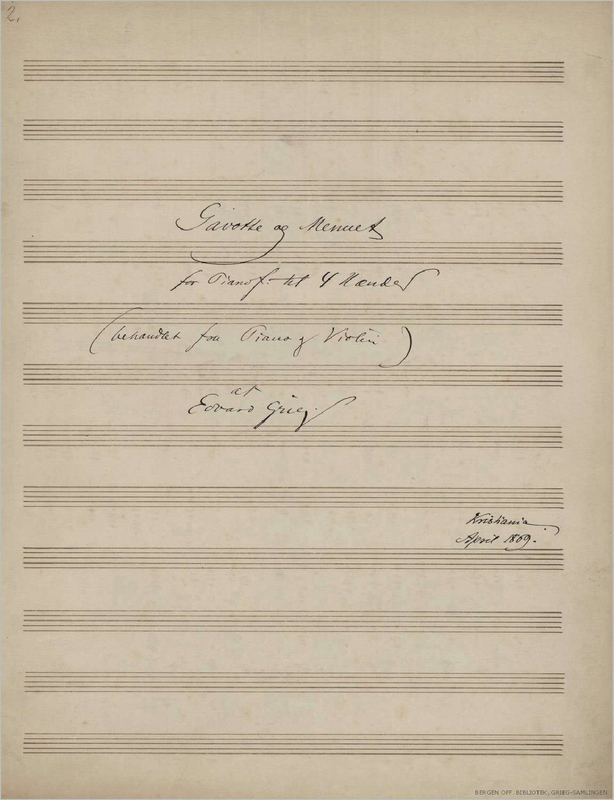 2.
Gavotte og Menuet
for Pianof. til 4 Hænder
(behandlet fra Piano og Violin)
af
Edvard Grieg.
Kristiania.
April 1869.
BERGEN OFF. BIBLIOTEK, GRIEG-SAMLINGEN